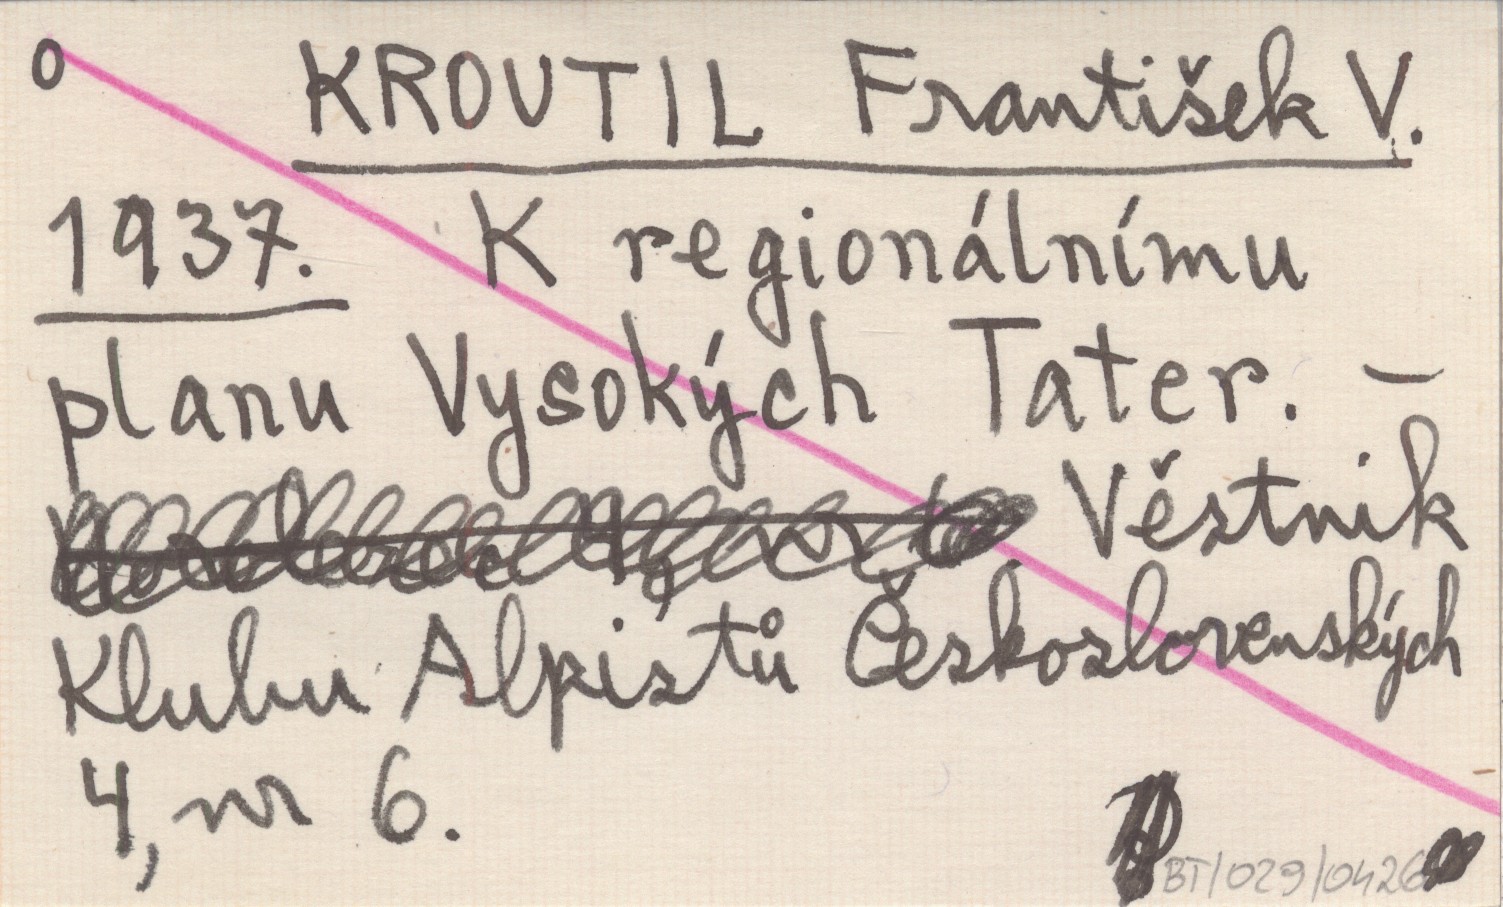 o KROUTIL František V.
1937. K regionálnímu
planu Vysokých Tater. –
Věstnik
Klubu Alpistů Československých
4, nr 6.
BT/029/0426